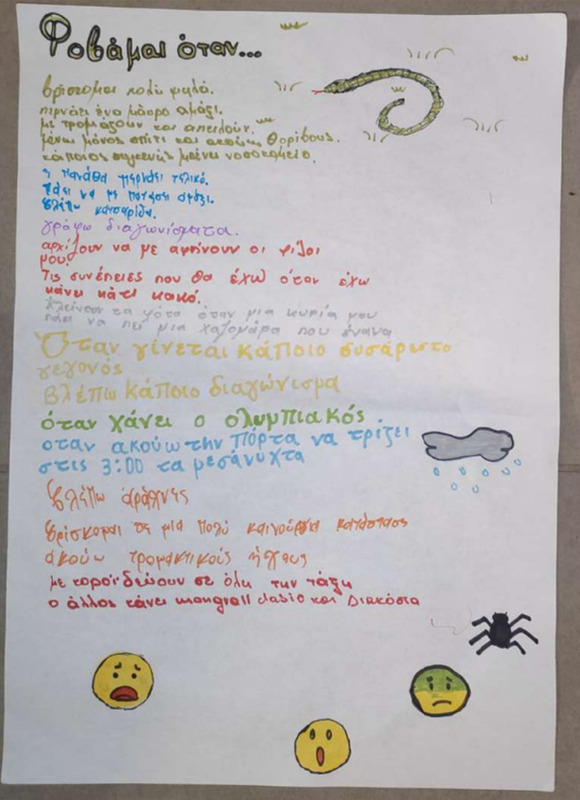 Φοβάμαι όταν...
βρίσκομαι πολύ ψηλά.
περνάει ένα μαύρο αμάξι.
με τρομάζουν και απειλούν.
μένω μόνος σπίτι και ακούω θορίβους.
κάποιος συγγενής μπαίνει νοσοκομείο.
η παναθα περνάει τελικό.
πάει να με πατήσει αμάξι.
βλέπω κατσαρίδα.
γράφω διαγωνίσματα.
αρχίζουν να με αφήνουν οι φίλοι
μου.
Τις συνέπειες που θα έχω όταν έχω
κάνει κάτι κακό.
κλείνουν τα φώτα όταν μια κυρία μου
πάει να πεί μια χαζομάρα που έκανα
Όταν γίνεται κάποιο δυσάρεστο
γεγονός
Βλέπω κάποιο διαγώνισμα
όταν χάνει ο ολυμπιακός
οταν ακούω την πόρτα να τρίζει
στις 3:00 τα μεσάνυχτα
βλέπω αράχνες
βρίσκομαι σε μια πολύ καινούργια κατάσταση
ακούω τρομακτικούς ήχους
με κοροϊδεύουν σε όλη την τάξη
ο άλλος κάνει και Διακόσια